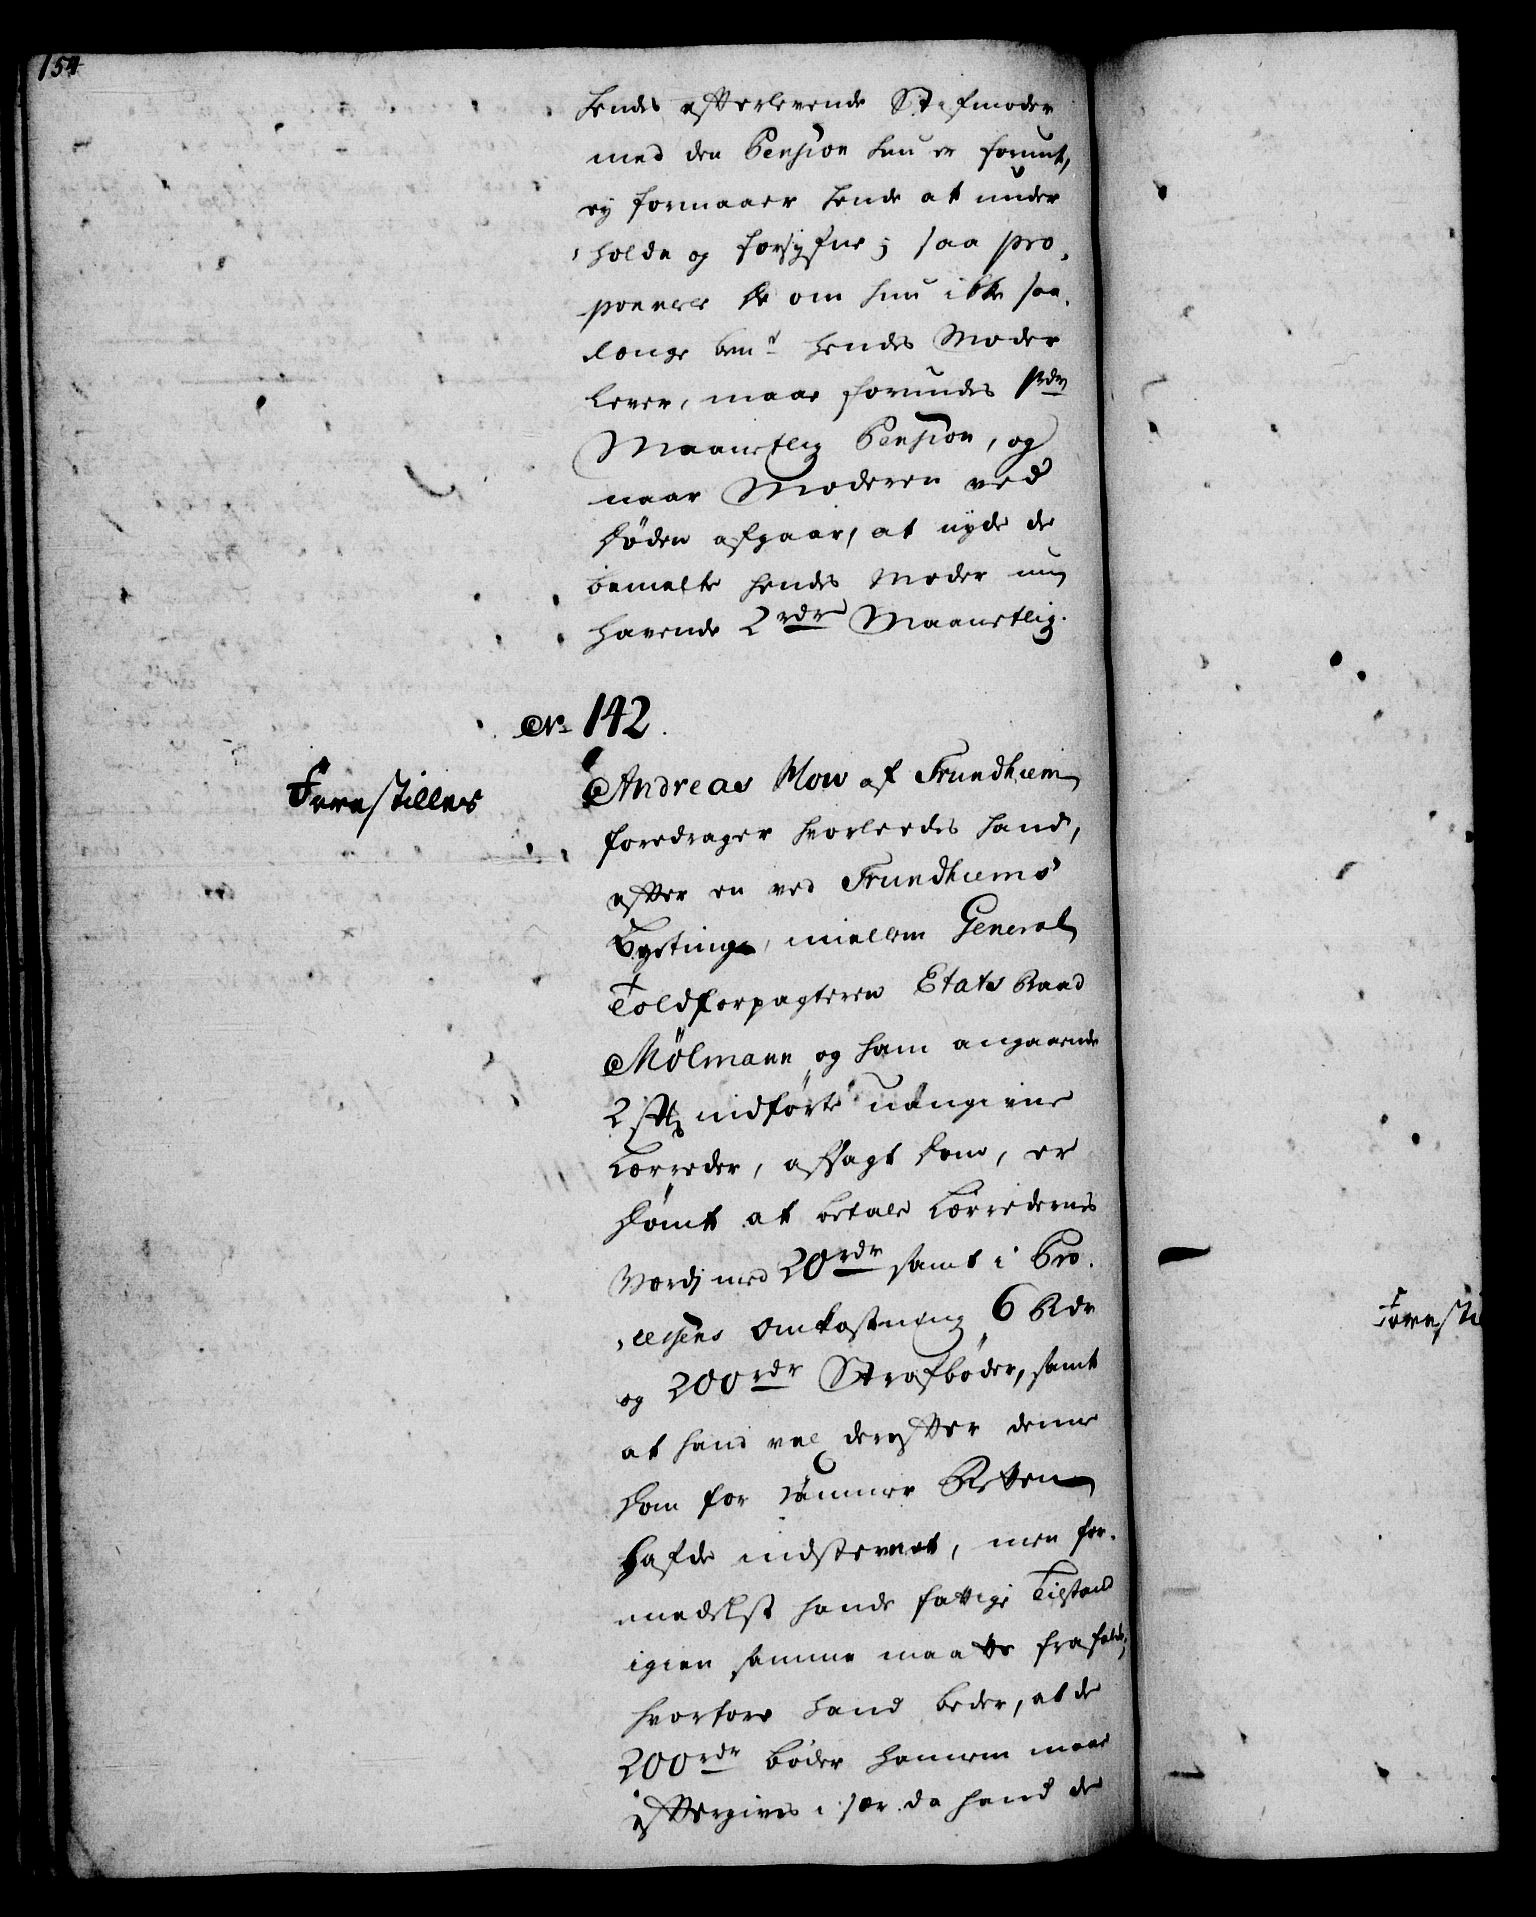 154
hendes efterlevende Stifmoder
med den Pension hun er forunt,
ey formaaer hende at under
holde og forsyfne; saa pro,
ponerer de om hun ikke saa,
længe bemt hendes Moder
lever, maae forundes 1 rdr
Maanetlig Pension, og
naar Moderen ved
Døden afgaar, at nyde de
bemelte hendes Moder nu
havende 2 rdr Maanetlig.
No 142.
Forestilles
Andreas Mow af Trundhiem
foredrager hvorledes hand,
efter en ved Trundhiems
Byeting, mellem General
Toldforpagteren Etats Raad
Mölmann og ham angaaende
2 st indførte uangivne
Lærreder, afsagt Dom, er
dømt at betale Lærredernes
Værdj med 20 rdr samt i Pro,
cessens Omkostning 6 Rdr
og 200 rdr Strafbøder, samt
at hand vel derefter denne
Dom for Retten
hafde indstevnet, men for,
medelst hands fattige Tilstand
igien samme maatte frafalde;
hvorfore hand beder, at de
200 rdr bøder hannem maae
eftergives i sær da hand de
Foresti